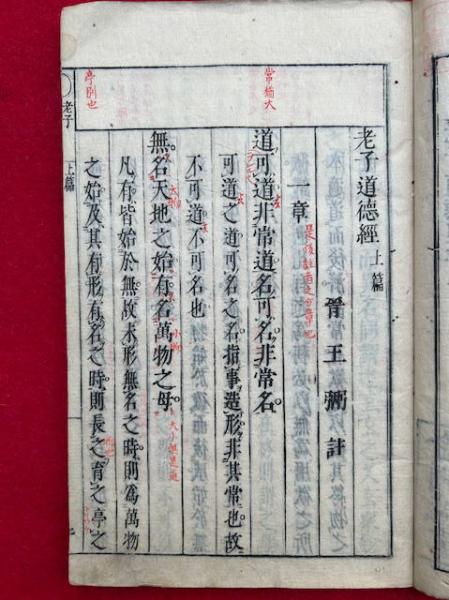 老子道德經上篇
晉 王 弼 註
一章
道可道非常道名可名非常名
可道之道可名之名指事造形非其常也故
不可道不可名也
無名天地之始有名萬物之母
凡有皆始於無故未形無名之時則爲萬物
之始及其有形有名之時則長之育之亭之
常猶大
亭別也
老子
上篇